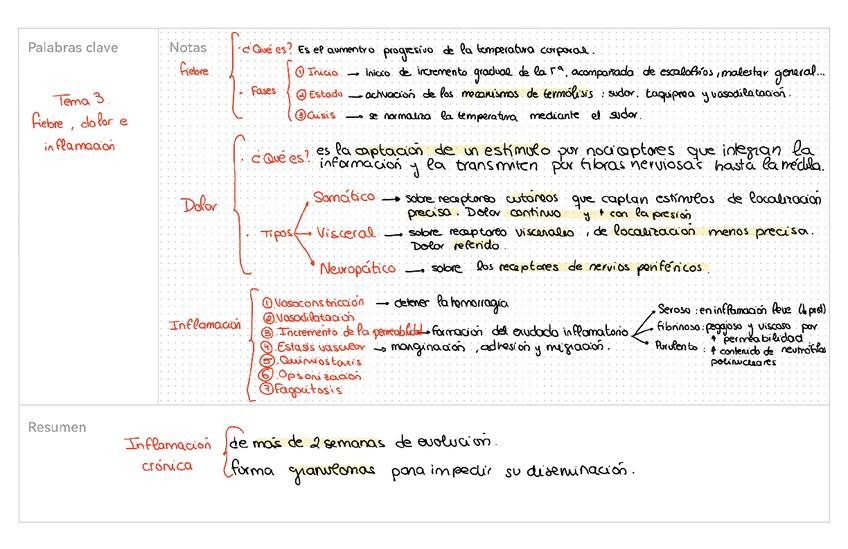 Palabras clave
Notas
Tema 3
fiebre, dolor e
inflamación
fiebre
· ¿Qué es? Es el aumento progresivo de la temperatura corporal.
· Fases
① Inicio → Inicio de incremento gradual de la Tª, acompañada de escalofríos, malestar general...
② Estado → activación de los mecanismos de termólisis : sudor, taquipnea y vasodilatación.
③ Crisis → se normaliza la temperatura mediante el sudor.
Dolor
· ¿Qué es? es la captación de un estímulo por nociceptores que integran la
información y la transmiten por fibras nerviosas hasta la médula.
· Tipos
Somático → sobre receptores cutáneos que captan estímulos de localización
precisa. Dolor continuo y ↑ con la presión
Visceral → sobre receptores viscerales, de localización menos precisa.
Dolor referido.
Neuropático → sobre los receptores de nervios periféricos.
Inflamación
① Vasoconstricción → detener la hemorragia
② Vasodilatación
③ Incremento de la permeablidad → formación del exudado inflamatorio
④ Estasis vascular → marginación, adhesión y migración.
⑤ Quimiotaxis
⑥ Opsonización
⑦ Fagocitosis
Seroso : en inflamación leve (↓ prot)
Fibrinoso: pegajoso y viscoso por
↑ permeabilidad
Purulento : ↑ contenido de neutrófilos
polinucleares
Resumen
Inflamación
crónica
de más de 2 semanas de evolución.
forma granulomas para impedir su diseminación.